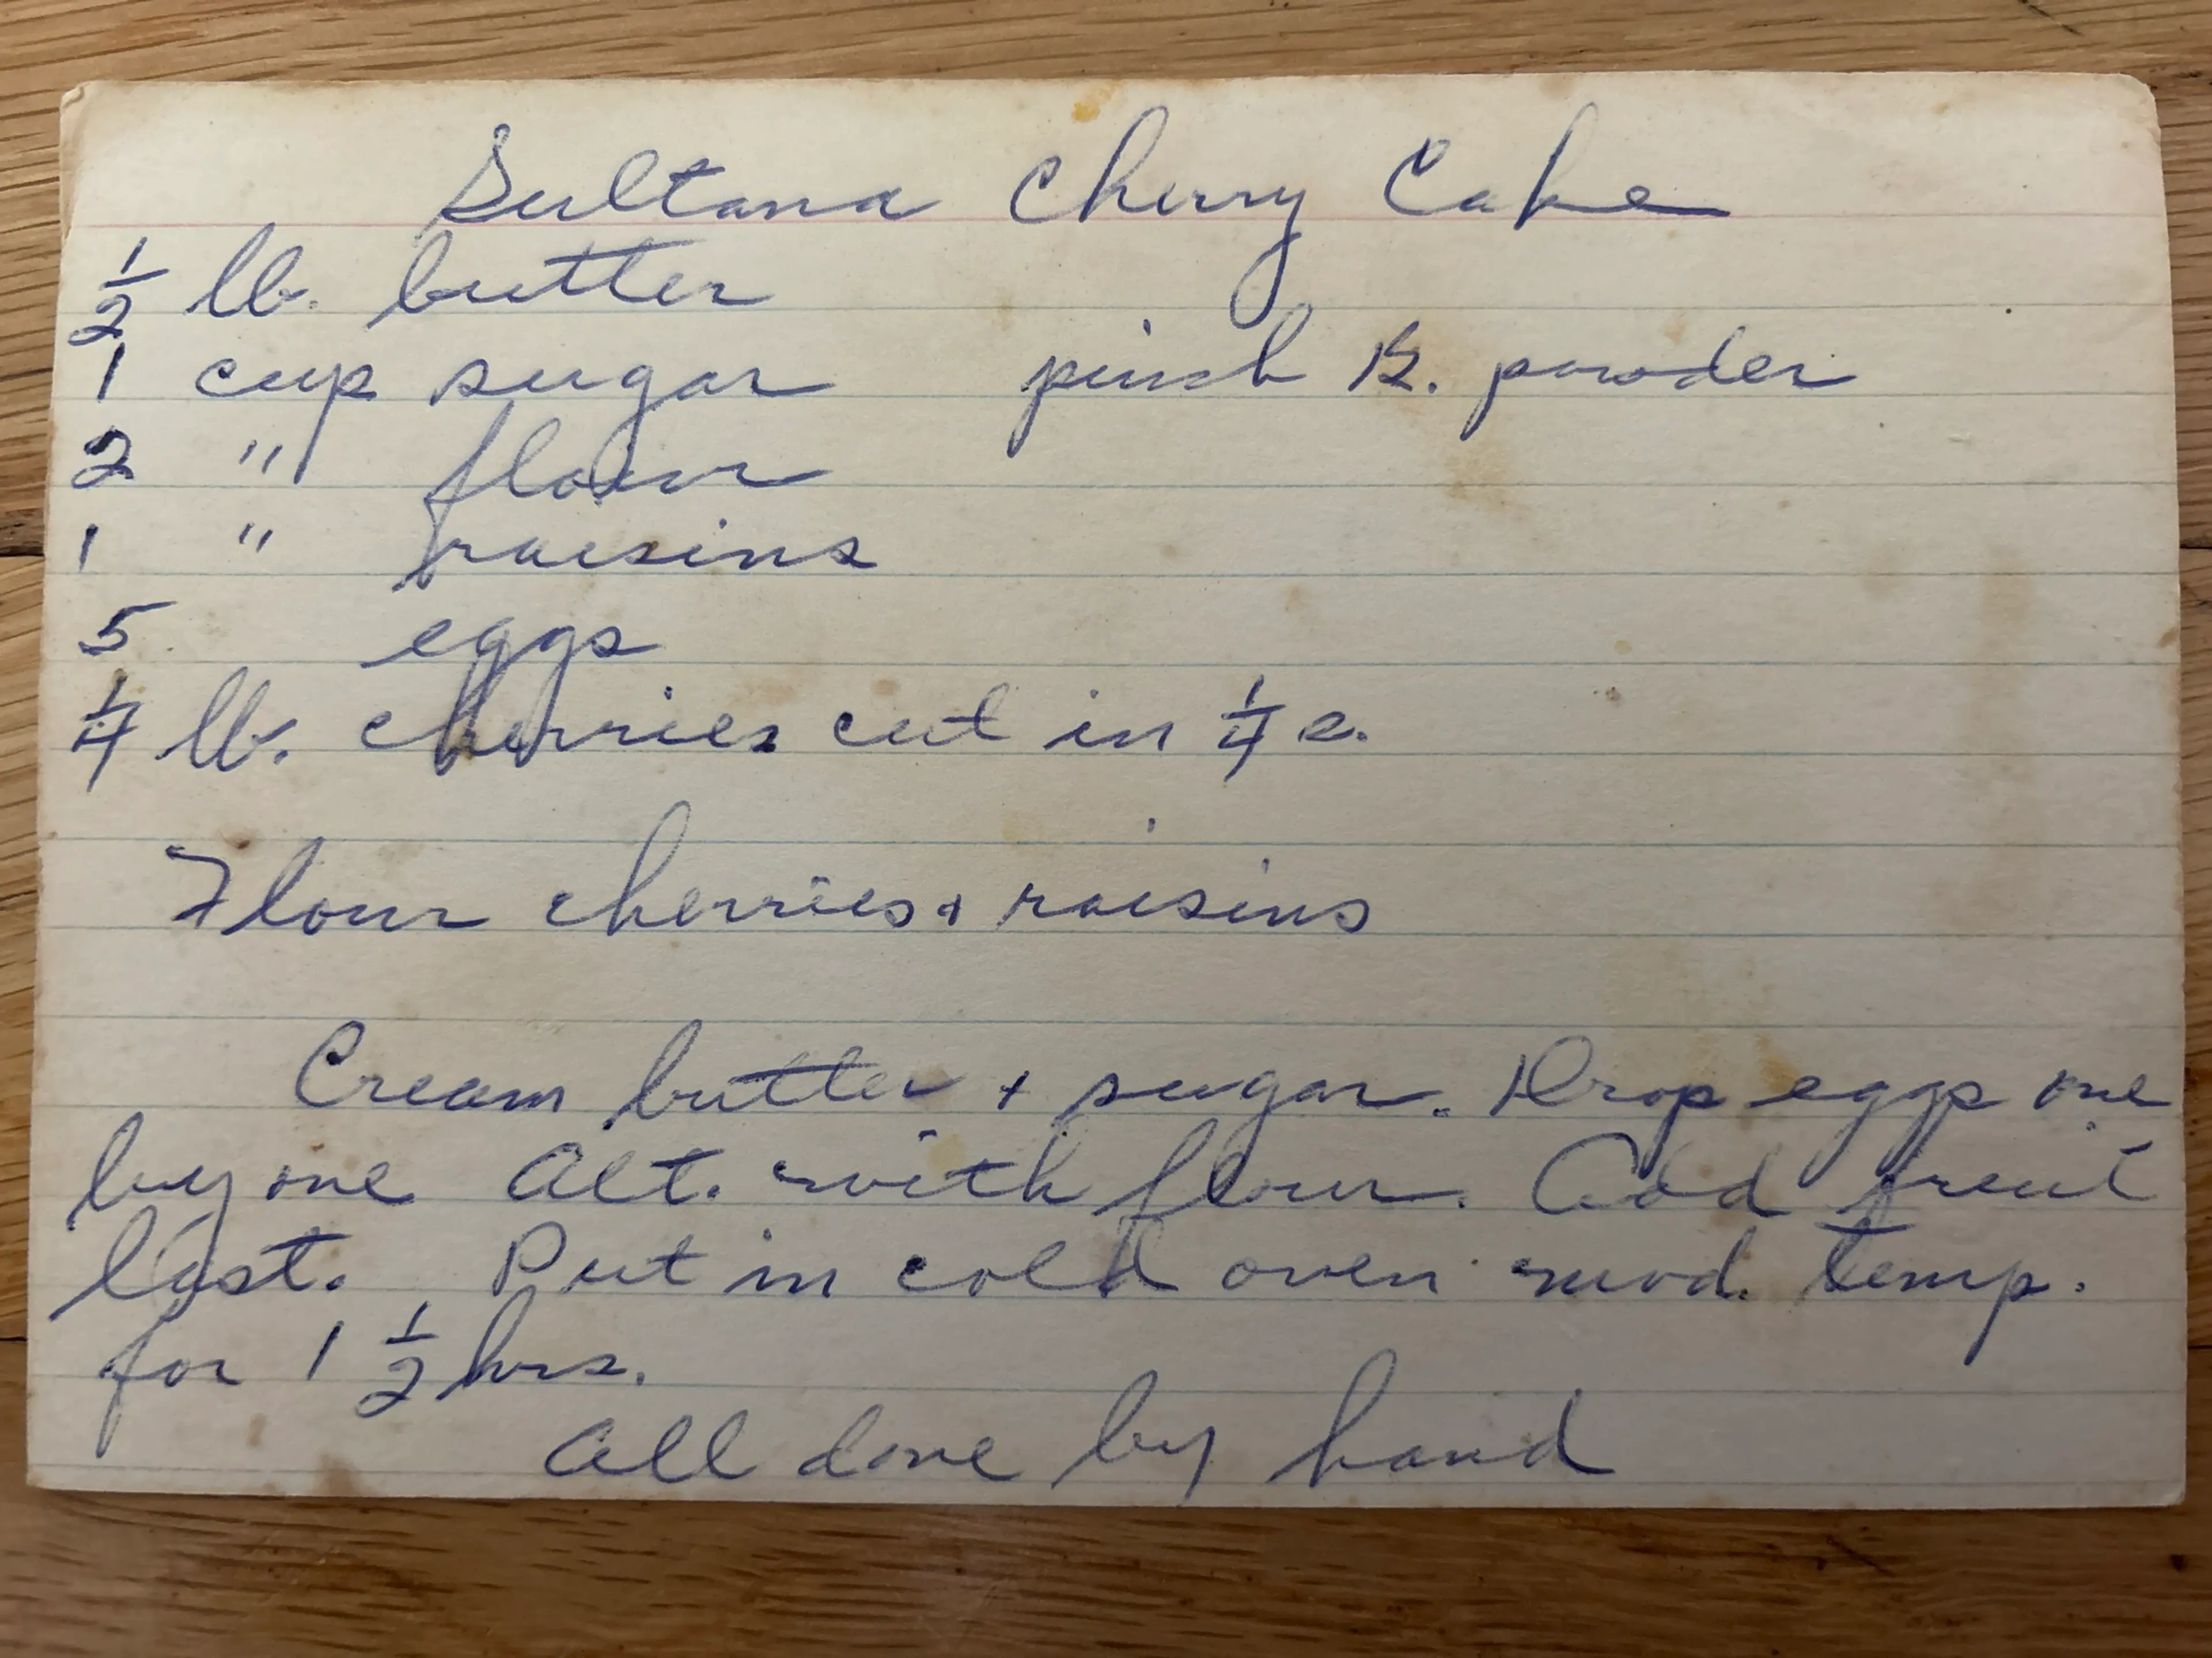 Sultana Cherry Cake
1/2 lb. butter
1 cup sugar pinch B. powder
2 " flour
1 " raisins
5 eggs
1/4 lb. cherries cut in 1/4 s.
Flour cherries + raisins
Cream butter + sugar. Drop eggs one
by one Alt. with flour. Add fruit
last. Put in cold oven mod. temp.
for 1 1/2 hrs.
All done by hand